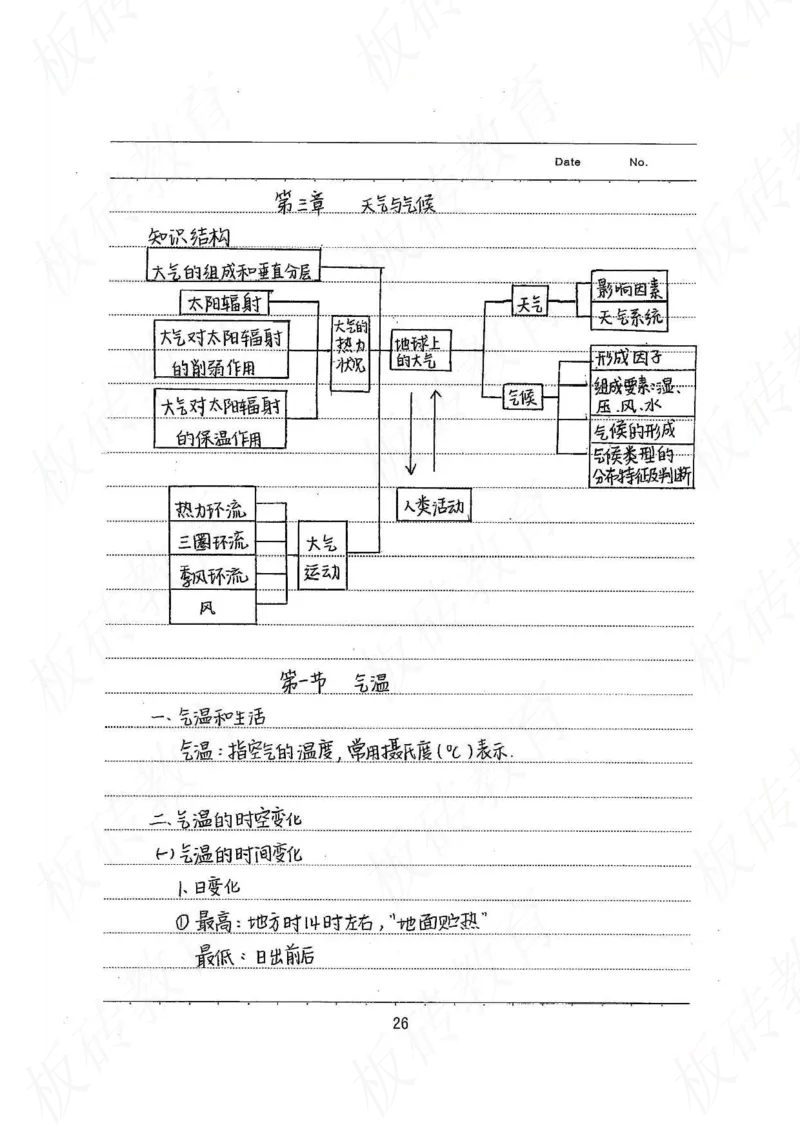 Date No.
第三章 天气与气候
知识结构
大气的组成和垂直分层
太阳辐射
大气对太阳辐射
的削弱作用
大气对太阳辐射
的保温作用
大气的
热力
状况
地球上
的大气
天气
影响因素
天气系统
气候
形成因子
组成要素:湿、
压、风、水
气候的形成
气候类型的
分布特征及判断
人类活动
热力环流
三圈环流
季风环流
风
大气
运动
第一节 气温
一、气温和生活
气温:指空气的温度,常用摄氏度(℃)表示.
二、气温的时空变化
(一)气温的时间变化
1、日变化
① 最高:地方时14时左右,"地面贮热"
最低:日出前后
26
板砖教育